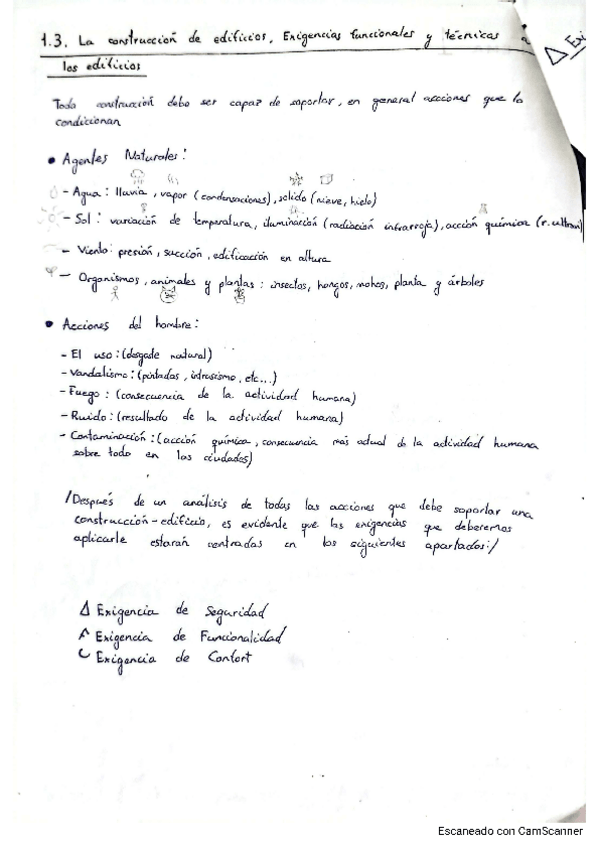 1.3. La construcción de edificios. Exigencias funcionales y técnicas a
los edificios
Δ Exi
Toda construcción debe ser capaz de soportar, en general acciones que lo
condicionan
• Agentes Naturales:
- Agua: lluvia, vapor (condensaciones), solido (nieve, hielo)
- Sol: variación de temperatura, iluminación (radiación infrarroja), acción química (r. ultravi
- Viento: presión, succión, edificación en altura
- Organismos, animales y plantas: insectos, hongos, mohos, planta y árboles
• Acciones del hombre:
- El uso: (desgaste natural)
- Vandalismo: (pintadas, intrusismo, etc...)
- Fuego: (consecuencia de la actividad humana)
- Ruido: (resultado de la actividad humana)
- Contaminación: (acción química, consecuencia más actual de la actividad humana
sobre todo en las ciudades)
/Después de un análisis de todas las acciones que debe soportar una
construcción-edificio, es evidente que las exigencias que deberemos
aplicarle estarán centradas en los siguientes apartados:/
Δ Exigencia de Seguridad
Exigencia de Funcionalidad
Exigencia de Confort
Escaneado con CamScanner